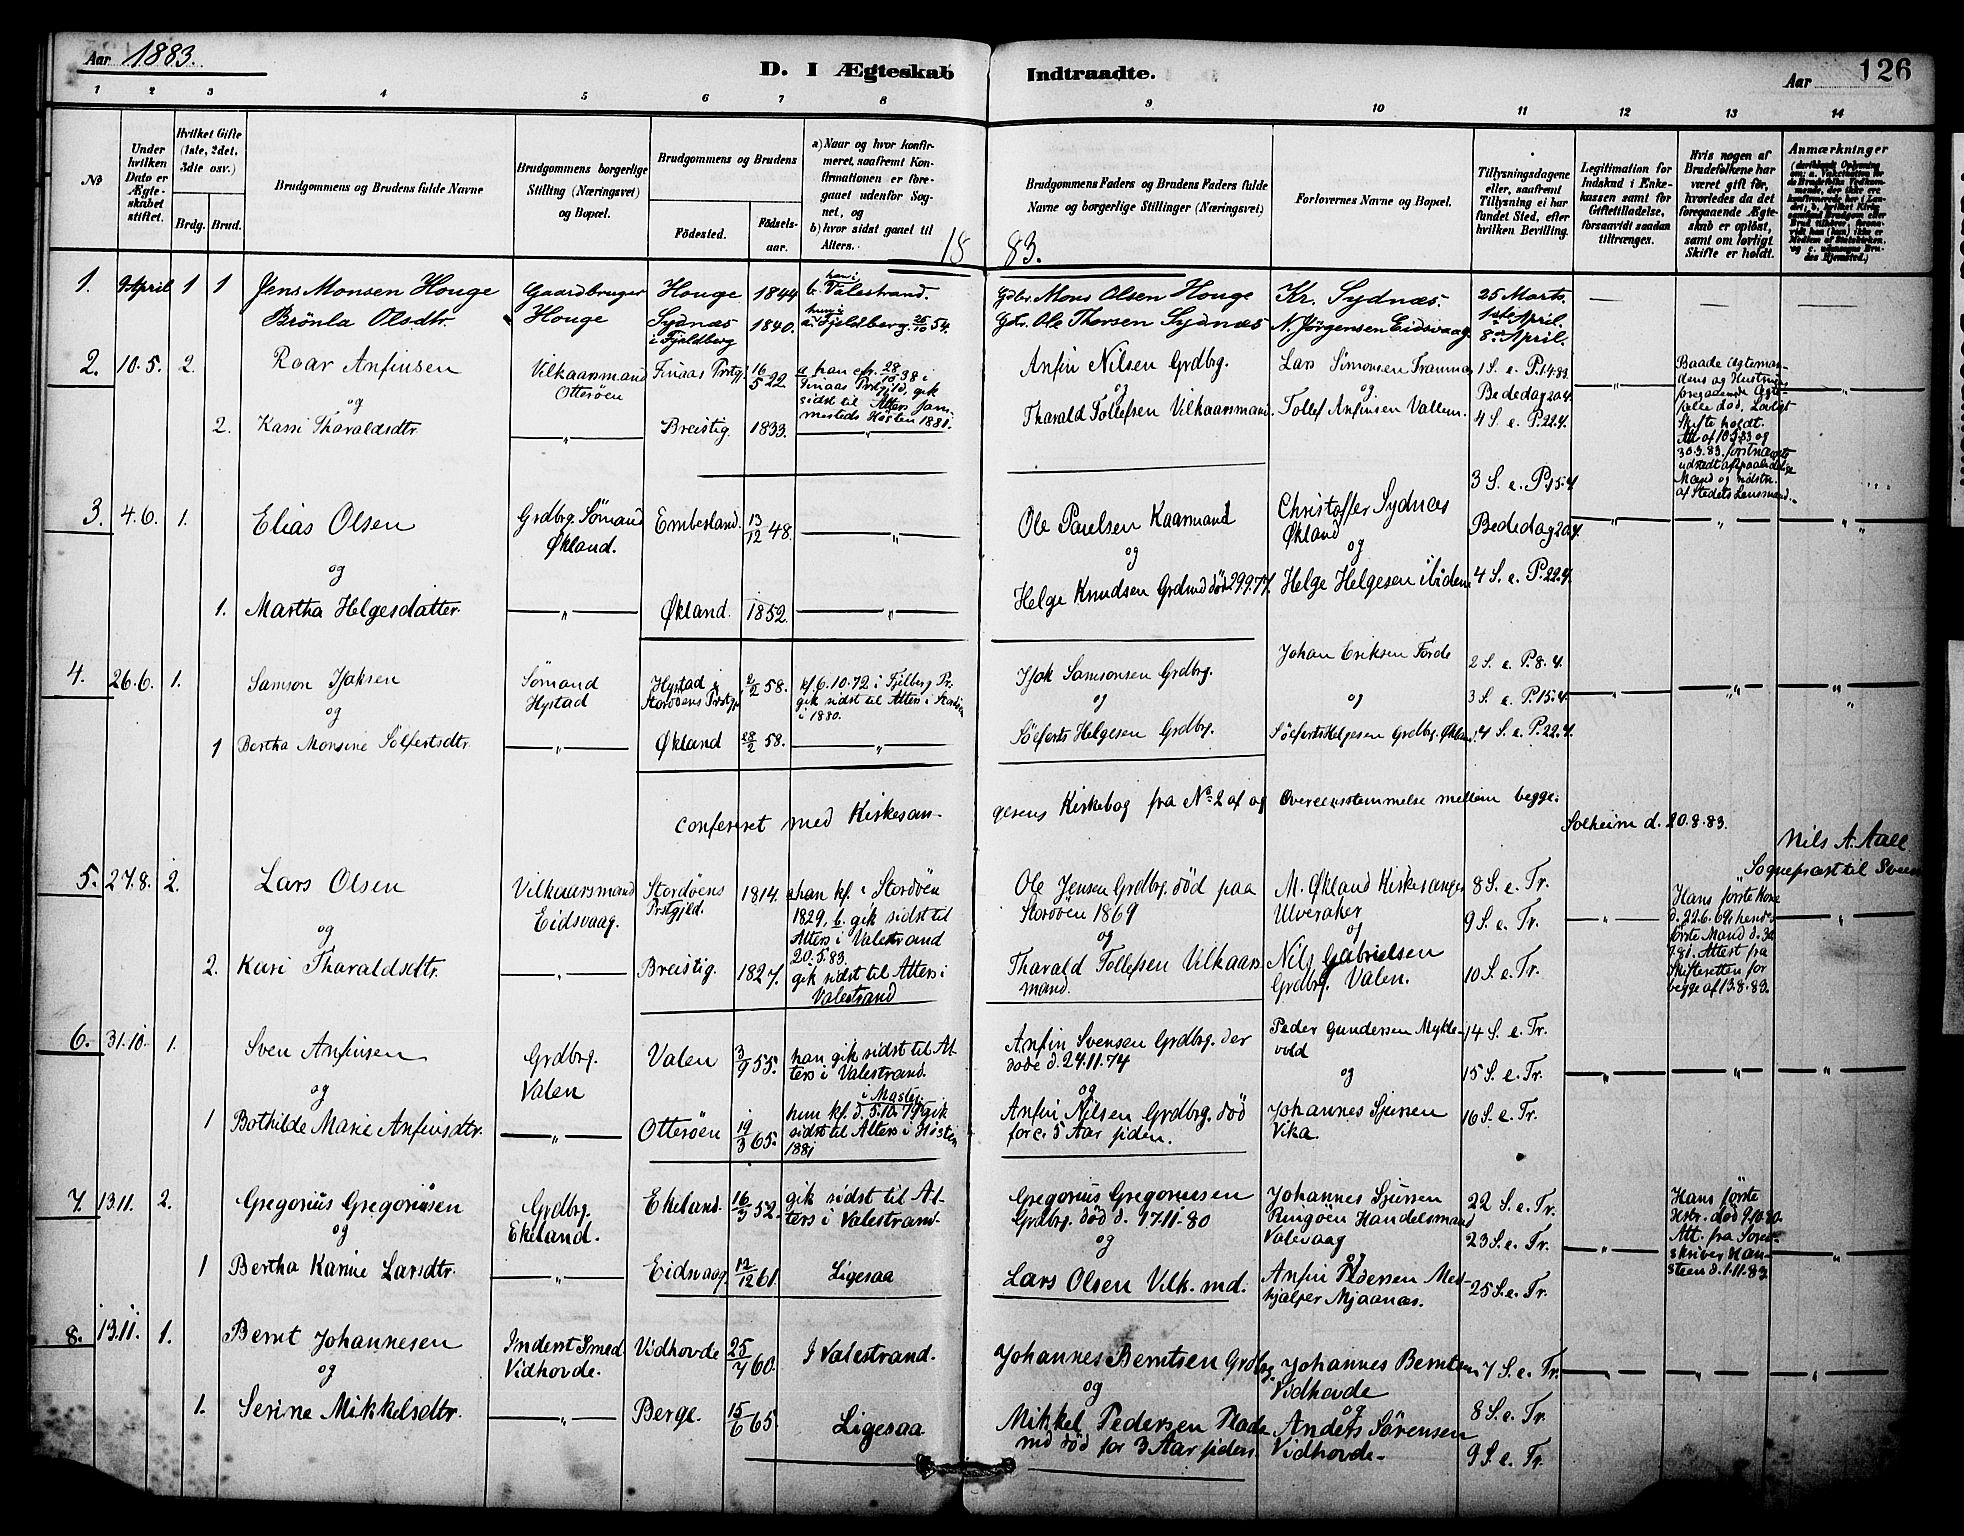 Aar 1883.
D. I Ægteskab Indtraadte.
Aar 126
1 2 3 4 5 6 7 8 9 10 11 12 13 14
No
Under hvilken Dato er Ægteskabet stiftet.
Hvilket Gifte (1ste, 2det, 3die osv.)
Brdg. Brud.
Brudgommens og Brudens fulde Navne
Brudgommens borgerlige Stilling (Næringsvei) og Bopæl.
Brudgommens og Brudens
Fødested. Fødselsaar.
a) Naar og hvor konfirmeret, saafremt Konfirmationen er foregaaet udenfor Sognet, og
b) hvor sidst gaaet til Alters.
Brudgommens Faders og Brudens Faders fulde Navne og borgerlige Stillinger (Næringsvei)
Forlovernes Navne og Bopæl.
Tillysningsdagene eller, saafremt Tillysning ei har fundet Sted, efter hvilken Bevilling.
Legitimation for Indskud i Enkekassen samt for Giftetilladelse, forsaavidt saadan tiltrænges.
Hvis nogen af Brudefolkene har været gift før, hvorledes da det foregaaende Ægteskab er opløst, samt om lovligt Skifte er holdt.
Anmærkninger
1883.
1. 9 April 1 1 Jens Monsen Houge Gaardbruger Houge 1844 han i b. Valestrand. Gdbr. Mons Olsen Houge Kr. Sydnæs. 25 Marts.
Brönla Olsdtr. Houge Sydnæs i Fjeldberg 1840. hun i a. Fjeldberg 54. Gdbr. Ole Thorsen Sydnæs N. Jörgensen Eidsvaag 1ste April. 8de April.
2. 10.5. 2. Roar Anfinsen Vilkaarsmand Otteröen Finaas Prstgj. 16/5 22 a han cfr. 28/10 38 i Finaas Prstgjld, gik sidst til Alters sammesteds Hösten 1881. Anfin Nilsen Grdbrg. Lars Simonsen 1 S. e. P. 1.4.83.
og og Bededag 20.4.
2. Kari Tharaldsdtr. Breistig. 1833. Tharald Tollefsen Vilkaarsmand. Tollef Anfinsen Vallem. 4 S. e. P. 22.4.
fp: Skifte holdt. Att. af 10.5.83 og 30.3.83. Mand og af Stedets Lensmand.
3. 4.6. 1. Elias Olsen Grdbrg. Sömand Økland. Emberland. 13/12 48 Ole Paulsen Kaarmand Christoffer Sydnæs Økland 3 S. e. P. 15.4.
og og og Bededag 20.4.
1. Martha Helgesdatter Økland. 1852. Helge Knudsen Grdmd död 29.9.77. Helge Helgesen ibidem 4 S. e. P. 22.4.
4. 26.6. 1. Samson Isaksen Sömand Hystad Hystad i Storöens Prstgj. 2/2 58. kf. 6.10.72 i Fjelberg Pr. gik sidst til Alters i Stordöen i 1880. Isak Samsonsen Grdbrg. Johan Eriksen Förde 2 S. e. P. 8.4.
og og og 3 S. e. P. 15.4.
1 Bertha Monsine Sölfertsdtr. Økland 28/2 58. Sölferts Helgesen Grdbrg. Sölferts Helgesen Grdbrg. Økland. 4 S. e. P. 22.4.
conferet med Kirkesangerens Kirkebog fra No. 2 af og Overeensstemmelse mellem begge.
Solheim d. 20.8.83.
Nils A. Aall
Sognepræst til Sveen
5. 27.8. 2. Lars Olsen Vilkaarsmand Eidsvaag. Stordöens Prstgjld. 1814. han kf. i Stordöen 1829, b. gik sidst til Alters i Valestrand 20.5.83. Ole Jensen Grdbrg. död paa Stordöen 1869 M. Økland Kirkesanger Ulveraker 8 S. e. Tr.
og og og 9 S. e. Tr.
2. Kari Tharaldsdtr. Breistig. 1827. gik sidst til Alters i Valestrand Tharald Tollefsen Vilkaarsmand. Nils Gabrielsen Grdbrg. Valen. 10 S. e. Tr.
Hans förste Kone d. 22.6.69, hendes förste Mand d. Attest fra Skifteretten for begge af 13.8.83.
6. 31.10. 1. Sven Anfinsen Grdbrg. Valen Valen 3/9 55. han gik sidst til Alters i Valestrand. Anfin Svensen Grdbrg. der döde d. 24.11.74 Peder Gundersen Myklevold 14 S. e. Tr.
og og og 15 S. e. Tr.
1 Bothilde Marie Anfinsdtr. Otteröen 19/3 65. hun kf. d. 5.10.79 i Moster gik sidst til Alters i Hösten 1881 Anfin Nilsen Grdbrg. död for c. 5 Aar siden. Johannes Sjursen Vika. 16 S. e. Tr.
7. 13.11. 2. Gregorius Gregoriussen Grdbrg. Ekeland. Ekeland. 16/3 52. gik sidst til Alters i Valestrand. Gregorius Gregoriussen Grdbrg. död d. 17.11.80 Johannes Sjursen Ringöen Handelsmand Valevaag 22 S. e. Tr.
og og og 23 S. e. Tr.
1 Bertha Karine Larsdtr. Eidsvaag 12/12 61. Ligesaa Lars Olsen Vilk. md. Anfin Pedersen Medhjelper Mjaanæs. 25 S. e. Tr.
Hans förste Hstr. död 9.10.80. Att. fra Sorenskriver Hansteen d. 1.11.83.
8. 13.11. 1. Bernt Johannesen Inderst Smed Vidhovde. Vidhovde 25/7 60. I Valestrand. Johannes Berntsen Grdbrg. Johannes Berntsen Vidhovde 7 S. e. Tr.
og og og 8 S. e. Tr.
1. Serine Mikkelsdtr. Berge. 15/6 65. Ligesaa Mikkel Pedersen Pladsmd död for 3 Aar siden. Anders Sörensen Vidhovde. 9 S. e. Tr.